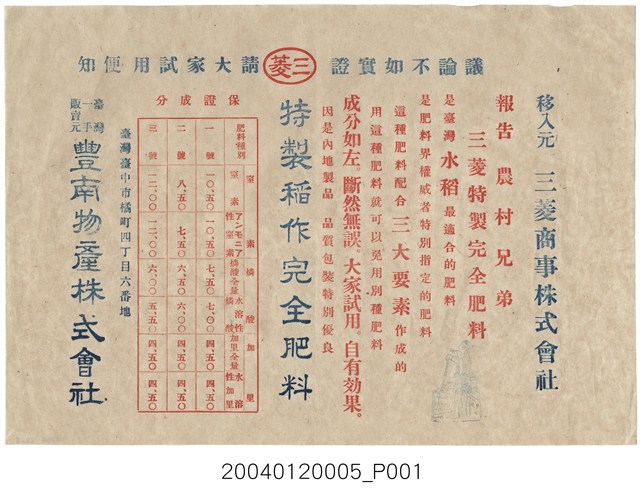 議論不如實證 三菱 請大家試用便知
移入元 三菱商事株式會社
報告 農村兄弟
三菱特製完全肥料
是臺灣水稻最適合的肥料
是肥料界權威者特別指定的肥料
這種肥料配合三大要素作成的
用這種肥料就可以免用別種肥料
成分如左。斷然無誤。大家試用。自有効果。
因是內地製品 品質包裝特別優良
特製稻作完全肥料
保證成分
肥料種別 窒素 燐酸 加里
窒素 アンモニア性窒素 燐酸全量 水溶性燐酸 加里全量 水溶性加里
一號 一〇、五〇 一〇、五〇 七、五〇 七、〇〇 四、五〇 四、五〇
二號 八、五〇 七、五〇 六、〇〇 四、五〇 四、五〇
三號 一二、〇〇 一二、〇〇 六、〇〇 五、五〇 四、五〇 四、五〇
臺灣臺中市橘町四丁目六番地
臺灣一手販賣元 豐南物產株式會社
20040120005_P001